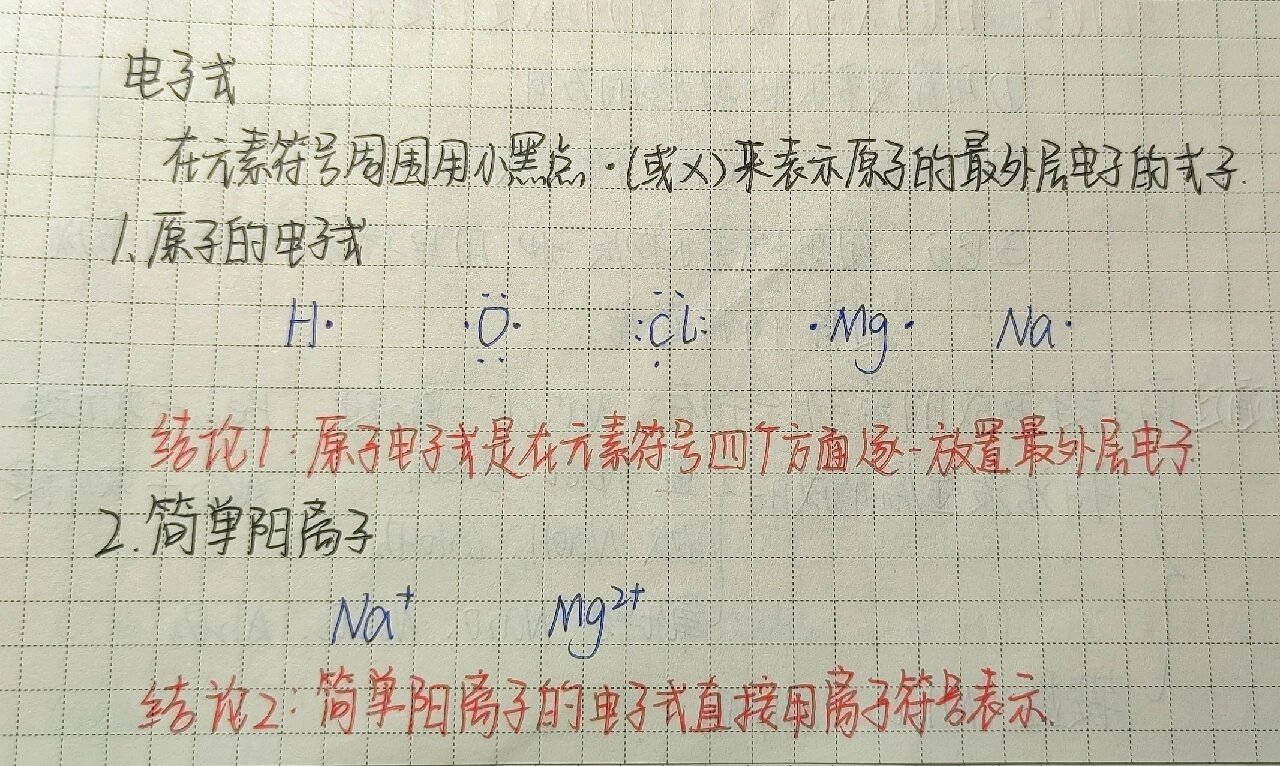 电子式
在元素符号周围用小黑点·(或×)来表示原子的最外层电子的式子.
1.原子的电子式
H· ·Ö· :Cl: ·Mg· Na·
结论1:原子电子式是在元素符号四个方面逐一放置最外层电子.
2.简单阳离子
Na⁺ Mg²⁺
结论2:简单阳离子的电子式直接用离子符号表示.